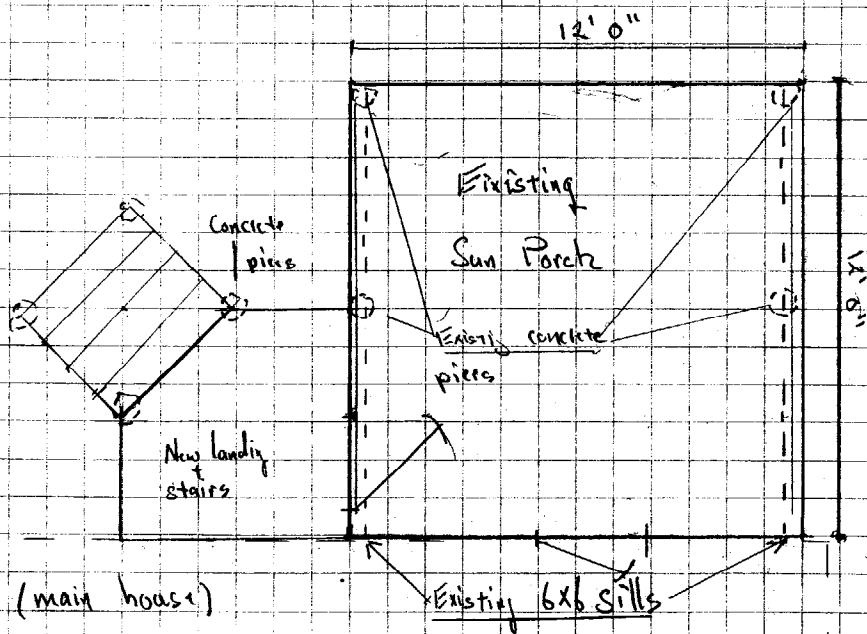 12' 0"
Eixisting
Sun Porch
12' 0"
Concrete
piers
Existig concrete
piers
New landig
+
stairs
(main house)
Existing 6x6 Sills